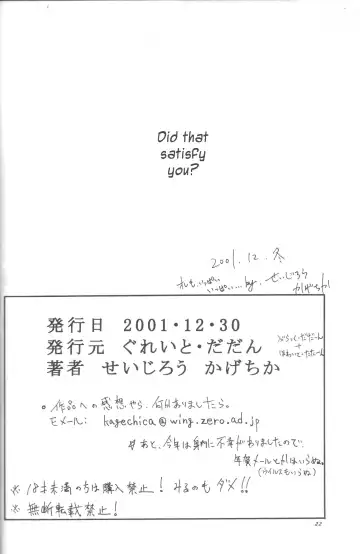 Did that
satisfy
you?
2001.12.冬
by. せいじろう
かげちか
発行日 2001・12・30
発行元 ぐれいと・だだん
著者 せいじろう かげちか
。作品への感想やら、何かありましたら。
Eメール: kagechica@wing.zero.ad.jp
#あと、今年は身内に不幸がありましたので、
年賀メールとかはいらぬ。
(ウイルスもいらぬ)
※18才未満の方は購入禁止! みるのもダメ!!
※無断転載禁止!
22